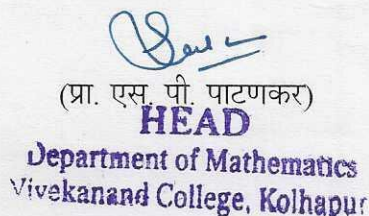 (प्रा. एस. पी. पाटणकर)
HEAD
Department of Mathematics
Vivekanand College, Kolhapur